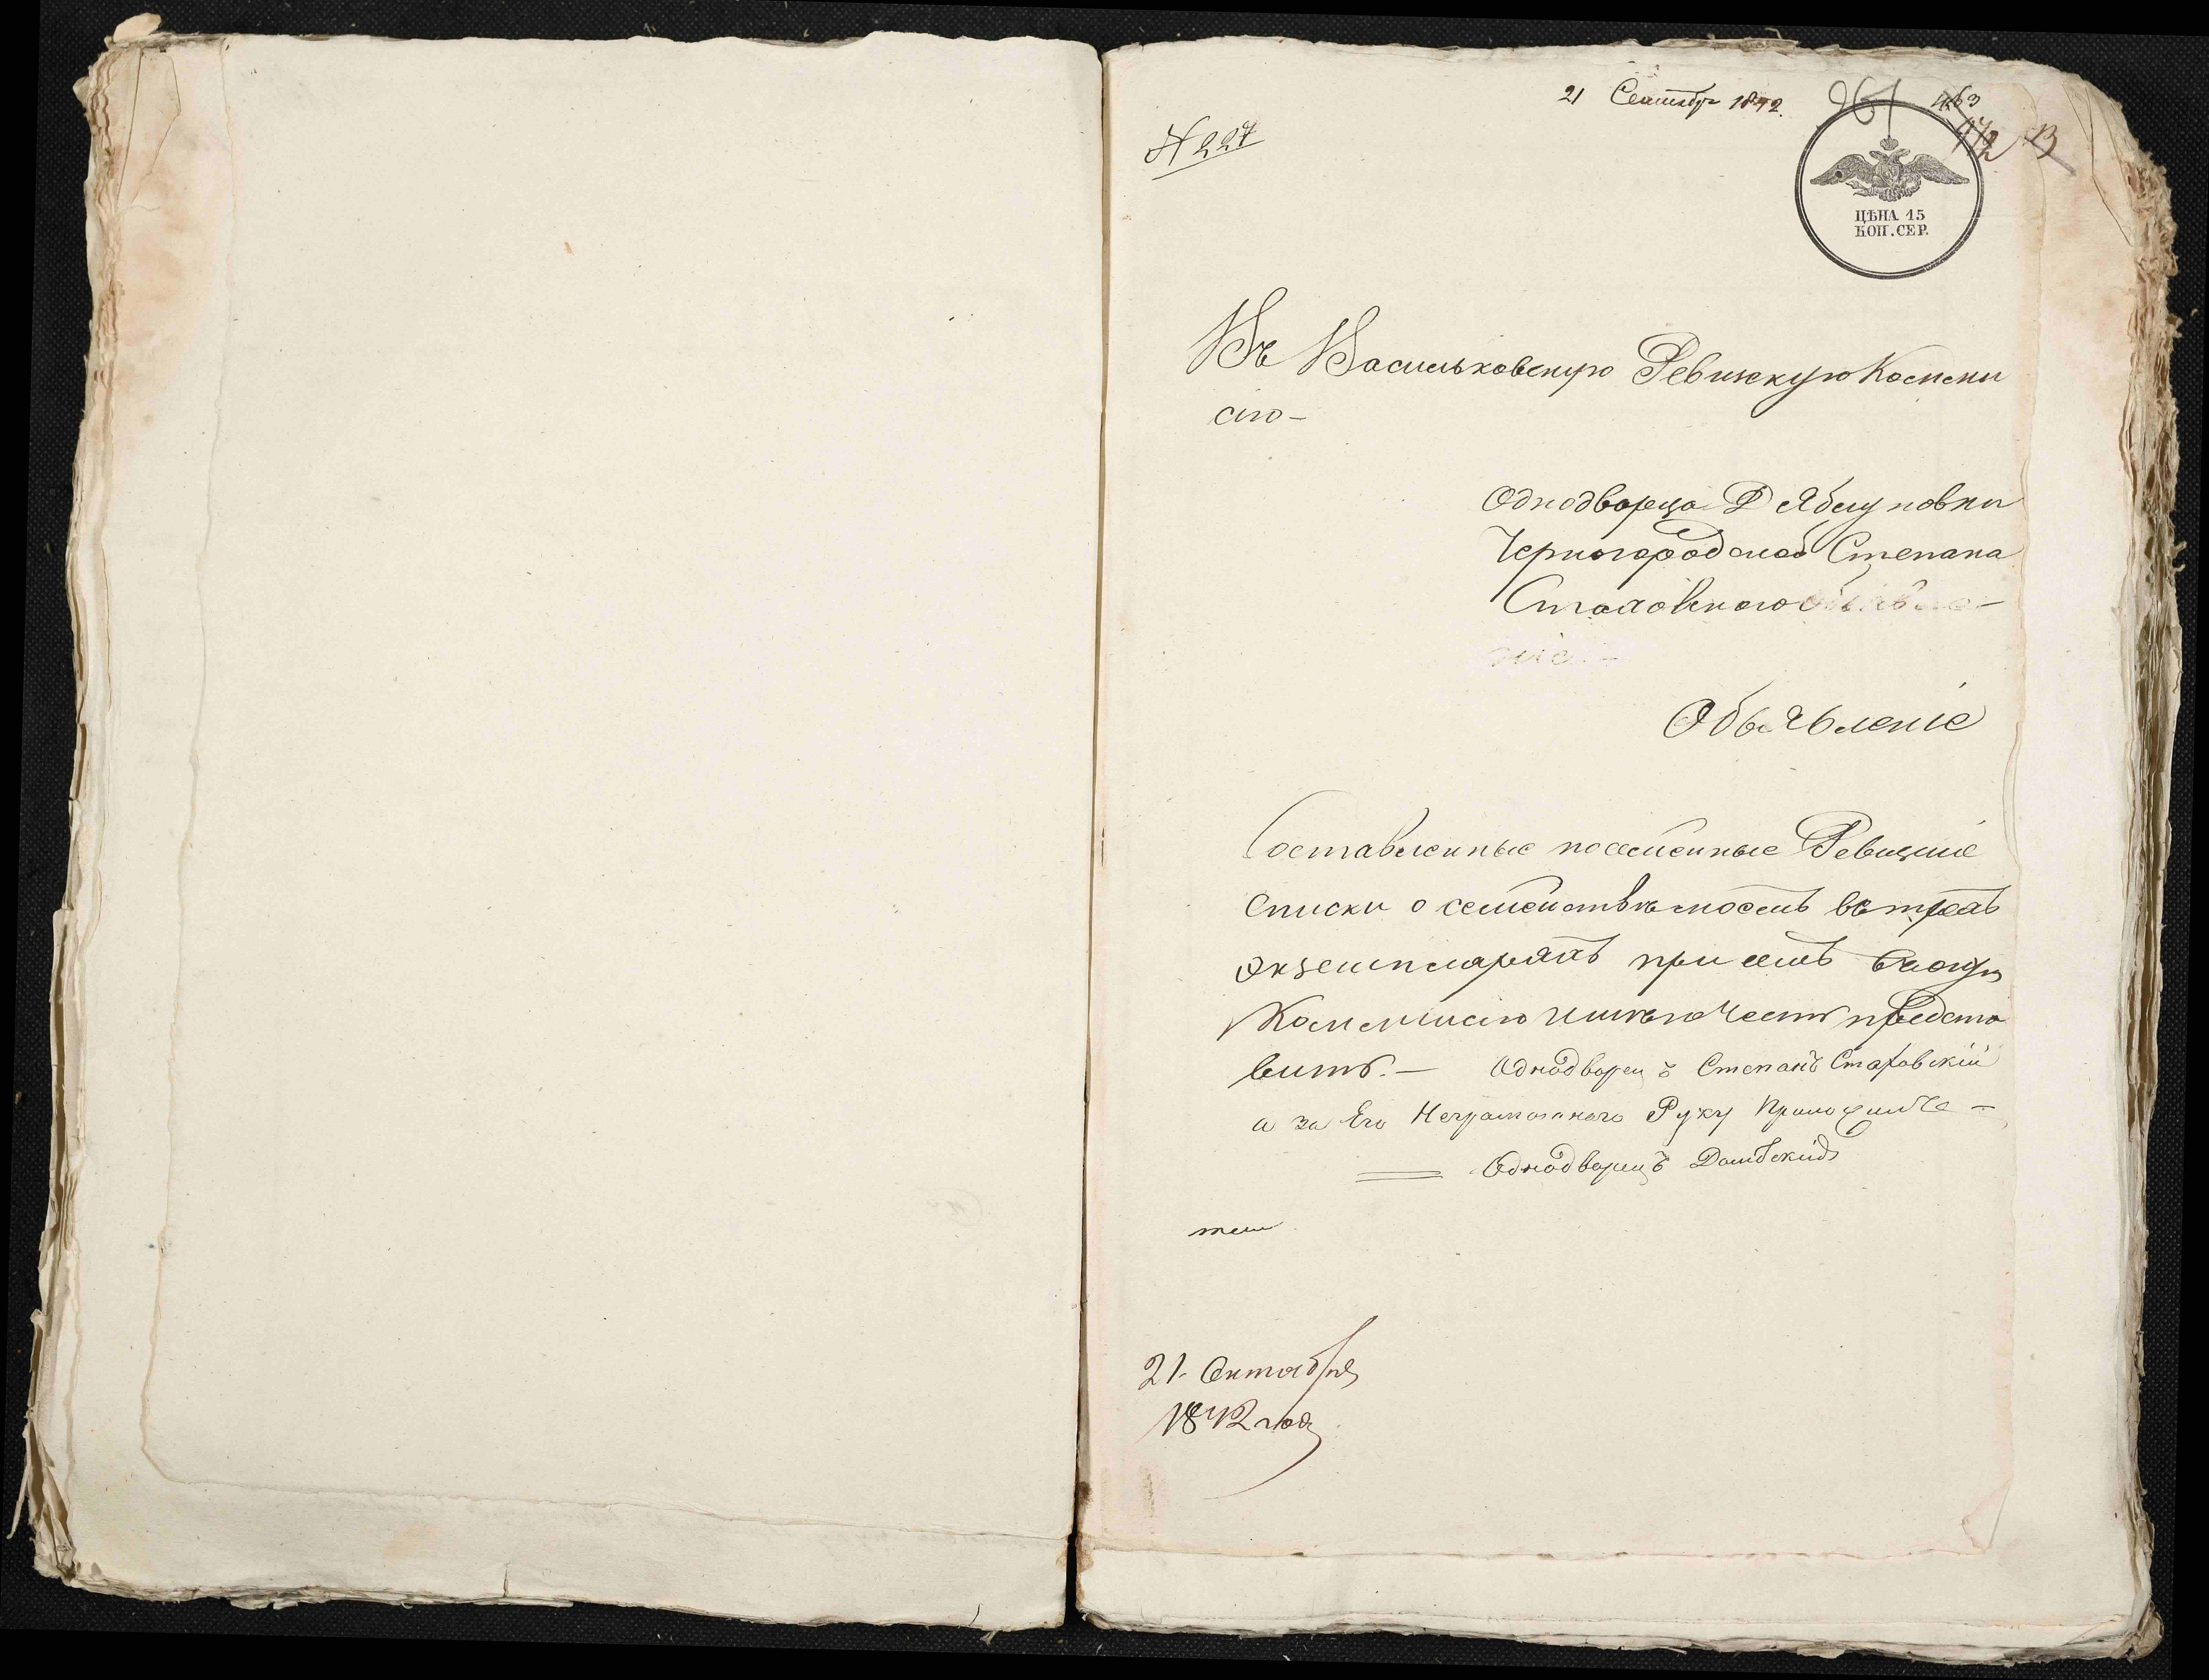 21 Сентябр 1842.
261
463
472
13
N 227
ЦѢНА 15
КОП. СЕР.
Въ Васильковскую Ревизкую Комми
сію –
Однодворца Д Яблуновки
Черногородской Степана
Стаховского объявле–
ніе. –
Объявленіе
Составленные посемейные Ревизкіе
Списки о семействѣ моемъ въ трехъ
экземплярахъ при семъ въ оную
Коммисію имѣю честь предста
вить. – Однодворецъ Степанъ Стаховскій
а за Его Неграмотного Руку Приложилъ –
Однодворецъ Домбскій
21. Октября
1842 года